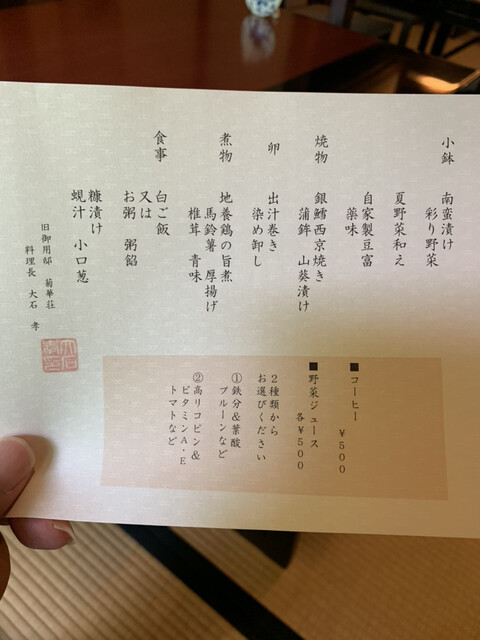 小鉢 南蛮漬け
彩り野菜
夏野菜和え
自家製豆富
薬味
焼物 銀鱈西京焼き
蒲鉾 山葵漬け
卵 出汁巻き
染め卸し
煮物 地養鶏の旨煮
馬鈴薯 厚揚げ
椎茸 青味
食事 白ご飯
又は
お粥 粥餡
糠漬け
蜆汁 小口葱
旧御用邸 菊華荘
料理長 大石 孝
■コーヒー ￥500
■野菜ジュース
各￥500
2種類から
お選びください
①鉄分&葉酸
プルーンなど
②高リコピン&
ビタミンA・E
トマトなど